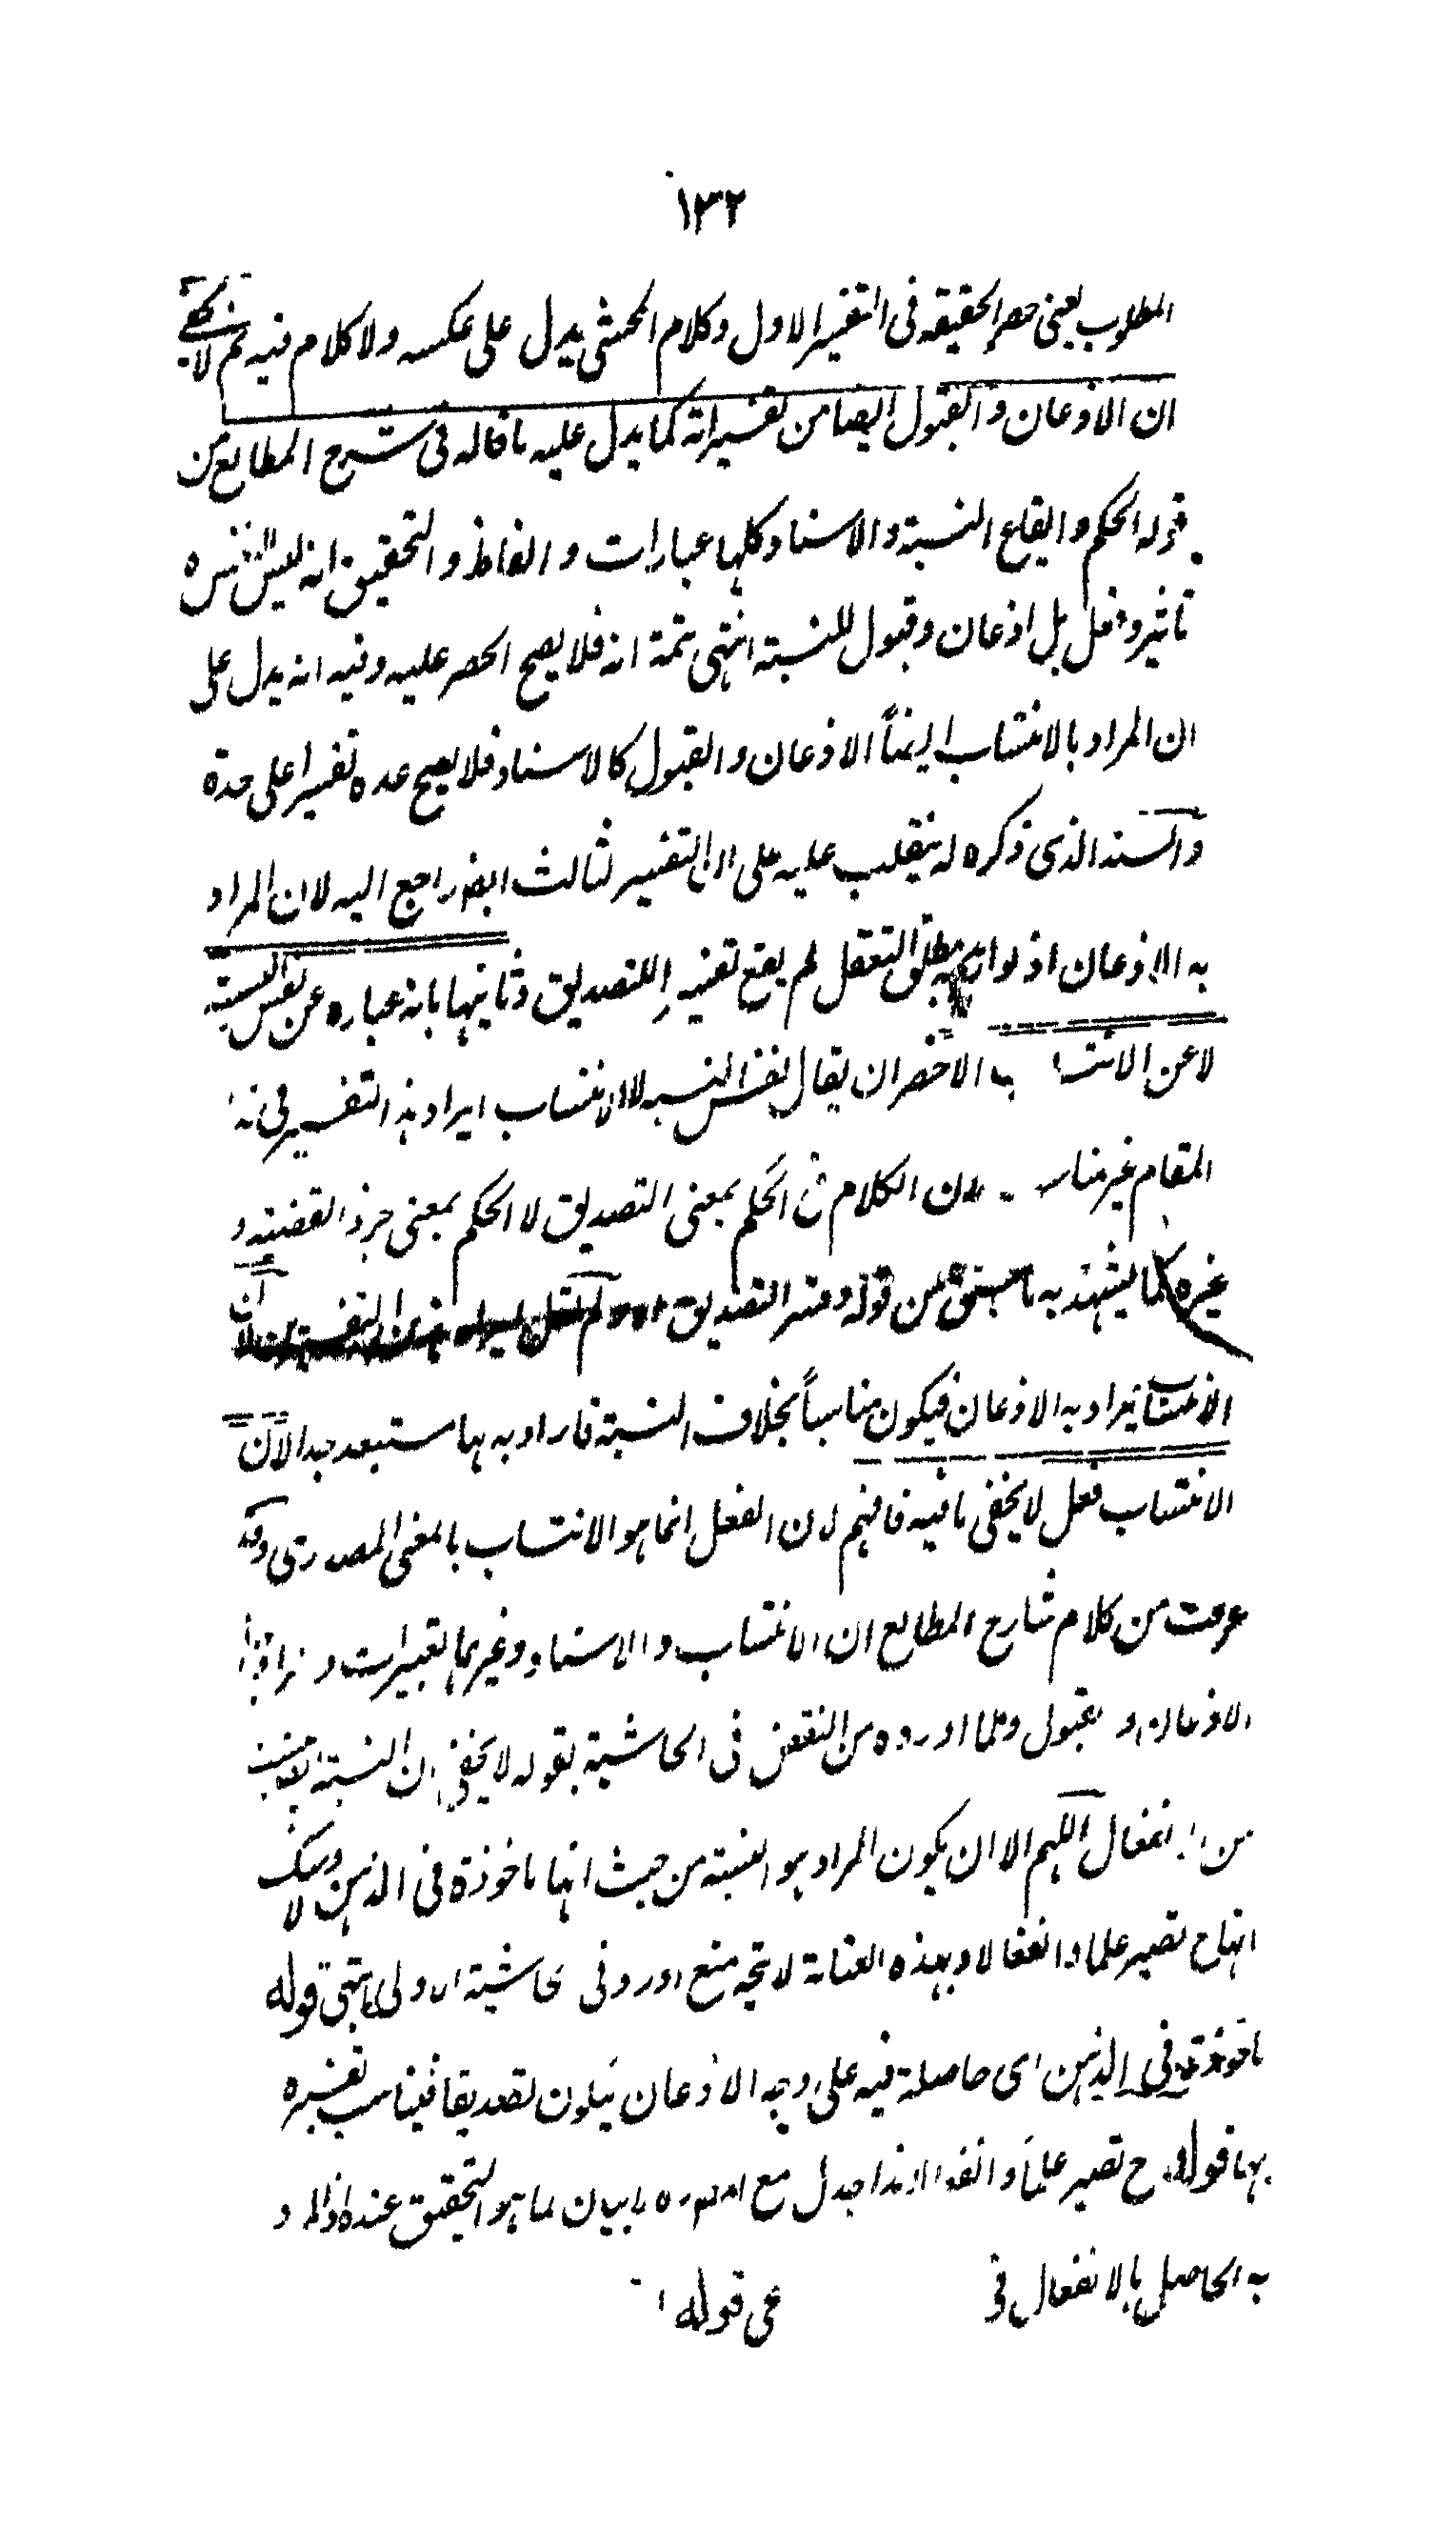 ١٣٢
المطلوب يعنى حصر الحقيقة فى التفسير الاول وكلام المحشى يدل على عكسه ولا كلام فيه ثم لا يخفى
ان الاذعان والقبول ايضا من تفسيراته كما يدل عليه ما قاله فى شرح المطالع من
قوله الحكم وايقاع النسبة والاسناد كلها عبارات والفاظ والتحقيق انه ليس للنفس ه
تاثير وفعل بل اذعان وقبول للنسبة انتهى تتمة انه فلا يصح الحصر عليه وفيه انه يدل على
ان المراد بالانتساب ايضاً الاذعان والقبول كالاسناد فلا يصح عده تفسيرا على حدة
والسند الذى ذكره له ينقلب عليه على ان التفسير لثالث ايضا راجع اليه لان المراد
به الاذعان اذ لو اريد به مطلق التعقل لم يقع تفسيرا للتصديق وثانيها بانه عباره عن نفس النسبة
لا عن الانتساب الاخصر ان يقال نفس النسبه لا الانتساب ايراد هذا التفسير فى هذا
المقام غير مناسب لان الكلام فى الحكم بمعنى التصديق لا الحكم بمعنى جزء القضية و
غيره كما يشهد به ما سبق من قوله وفسر التصديق لان
الانتساب يراد به الاذعان فيكون مناسباً بخلاف النسبة فارادبه بها مستبعد جدا لان
الانتساب فعل لا يخفى ما فيه فافهم لان الفعل انما هو الانتساب بالمعنى المصدرى وقد
عرفت من كلام شارح المطالع ان الانتساب والاسناد وغيرهما تعبيرات و
الاذعان و قبول ومما اورده من النقض فى الحاشية بقوله لا يخفى ان النسبة ايضا ليست
من الانفعال اللهم الا ان يكون المراد هو النسبة من حيث انها ماخوذة فى الذهن ولا شك
انها ح تصير علما وانفعالا وبهذه العناية لا يتجه منع اورد فى حاشية الاولى انتهى قوله
ماخوذة فى الذهن اى حاصلة فيه على وجه الاذعان فيكون تصديقا فيناسب تفسيره
بها قوله ح تصير علماً وانفعالا هذا جدل مع بيان لما هو التحقيق عنده اذ المراد
به الحاصل بالانفعال فى قوله